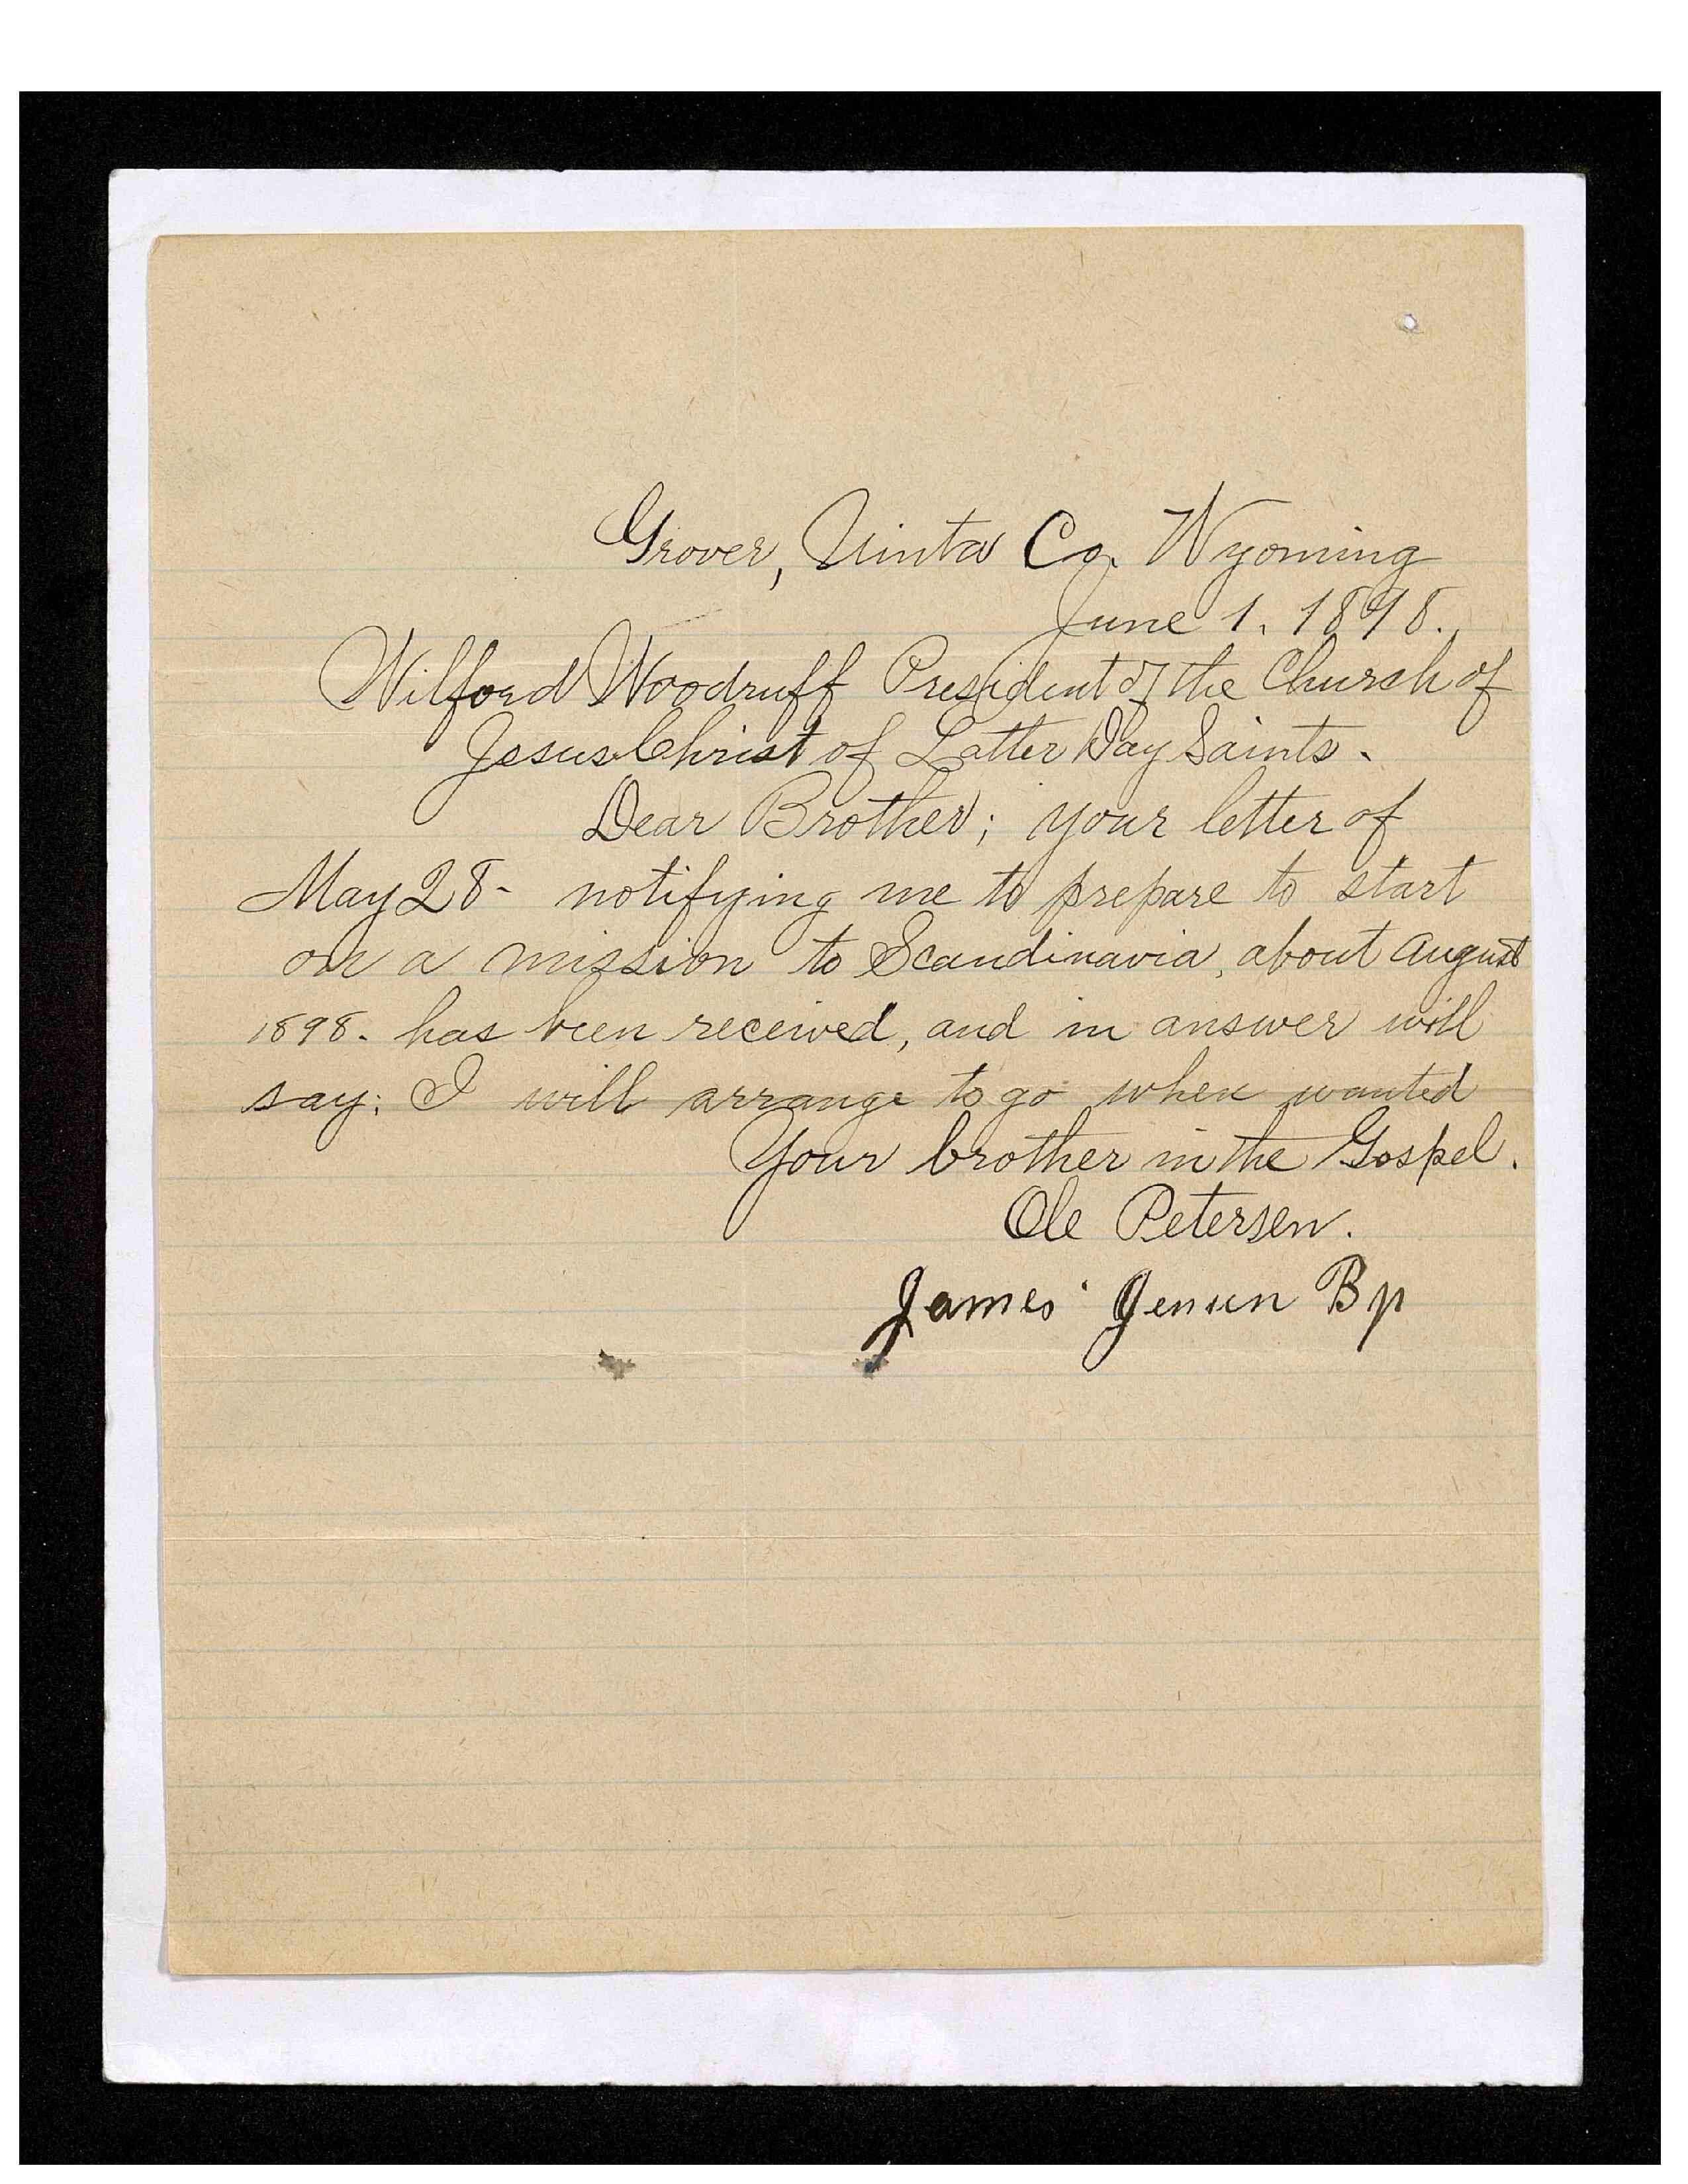 Grover, Uinta Co. Wyoming
June 1. 1898.
Wilford Woodruff President of the Church of
Jesus Christ of Latter Day Saints.
Dear Brother; your letter of
May 28- notifying me to prepare to start
on a mission to Scandinavia, about August
1898. has been received, and in answer will
say: I will arrange to go when wanted
Your brother in the Gospel.
Ole Petersen.
James Jensen Bp